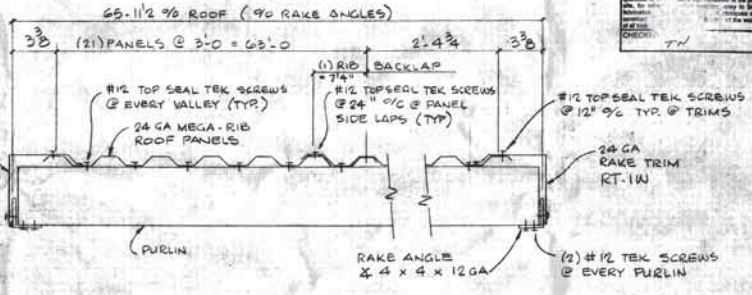 65-11 1/2 O/O ROOF ( O/O RAKE ANGLES)
3 3/8
(21) PANELS @ 3'-0 = 63'-0
2'-4 3/4
3 3/8
(1) RIB BACKLAP
= 7 1/4"
#12 TOP SEAL TEK SCREWS
@ EVERY VALLEY (TYP.)
#12 TOP SEAL TEK SCREWS
@ 24" O/C @ PANEL
SIDE LAPS (TYP)
#12 TOP SEAL TEK SCREWS
@ 12" O/C TYP. @ TRIMS
24 GA MEGA-RIB
ROOF PANELS
24 GA
RAKE TRIM
RT-1W
PURLIN
RAKE ANGLE
∠ 4 x 4 x 12 GA
(2) #12 TEK SCREWS
@ EVERY PURLIN
TN